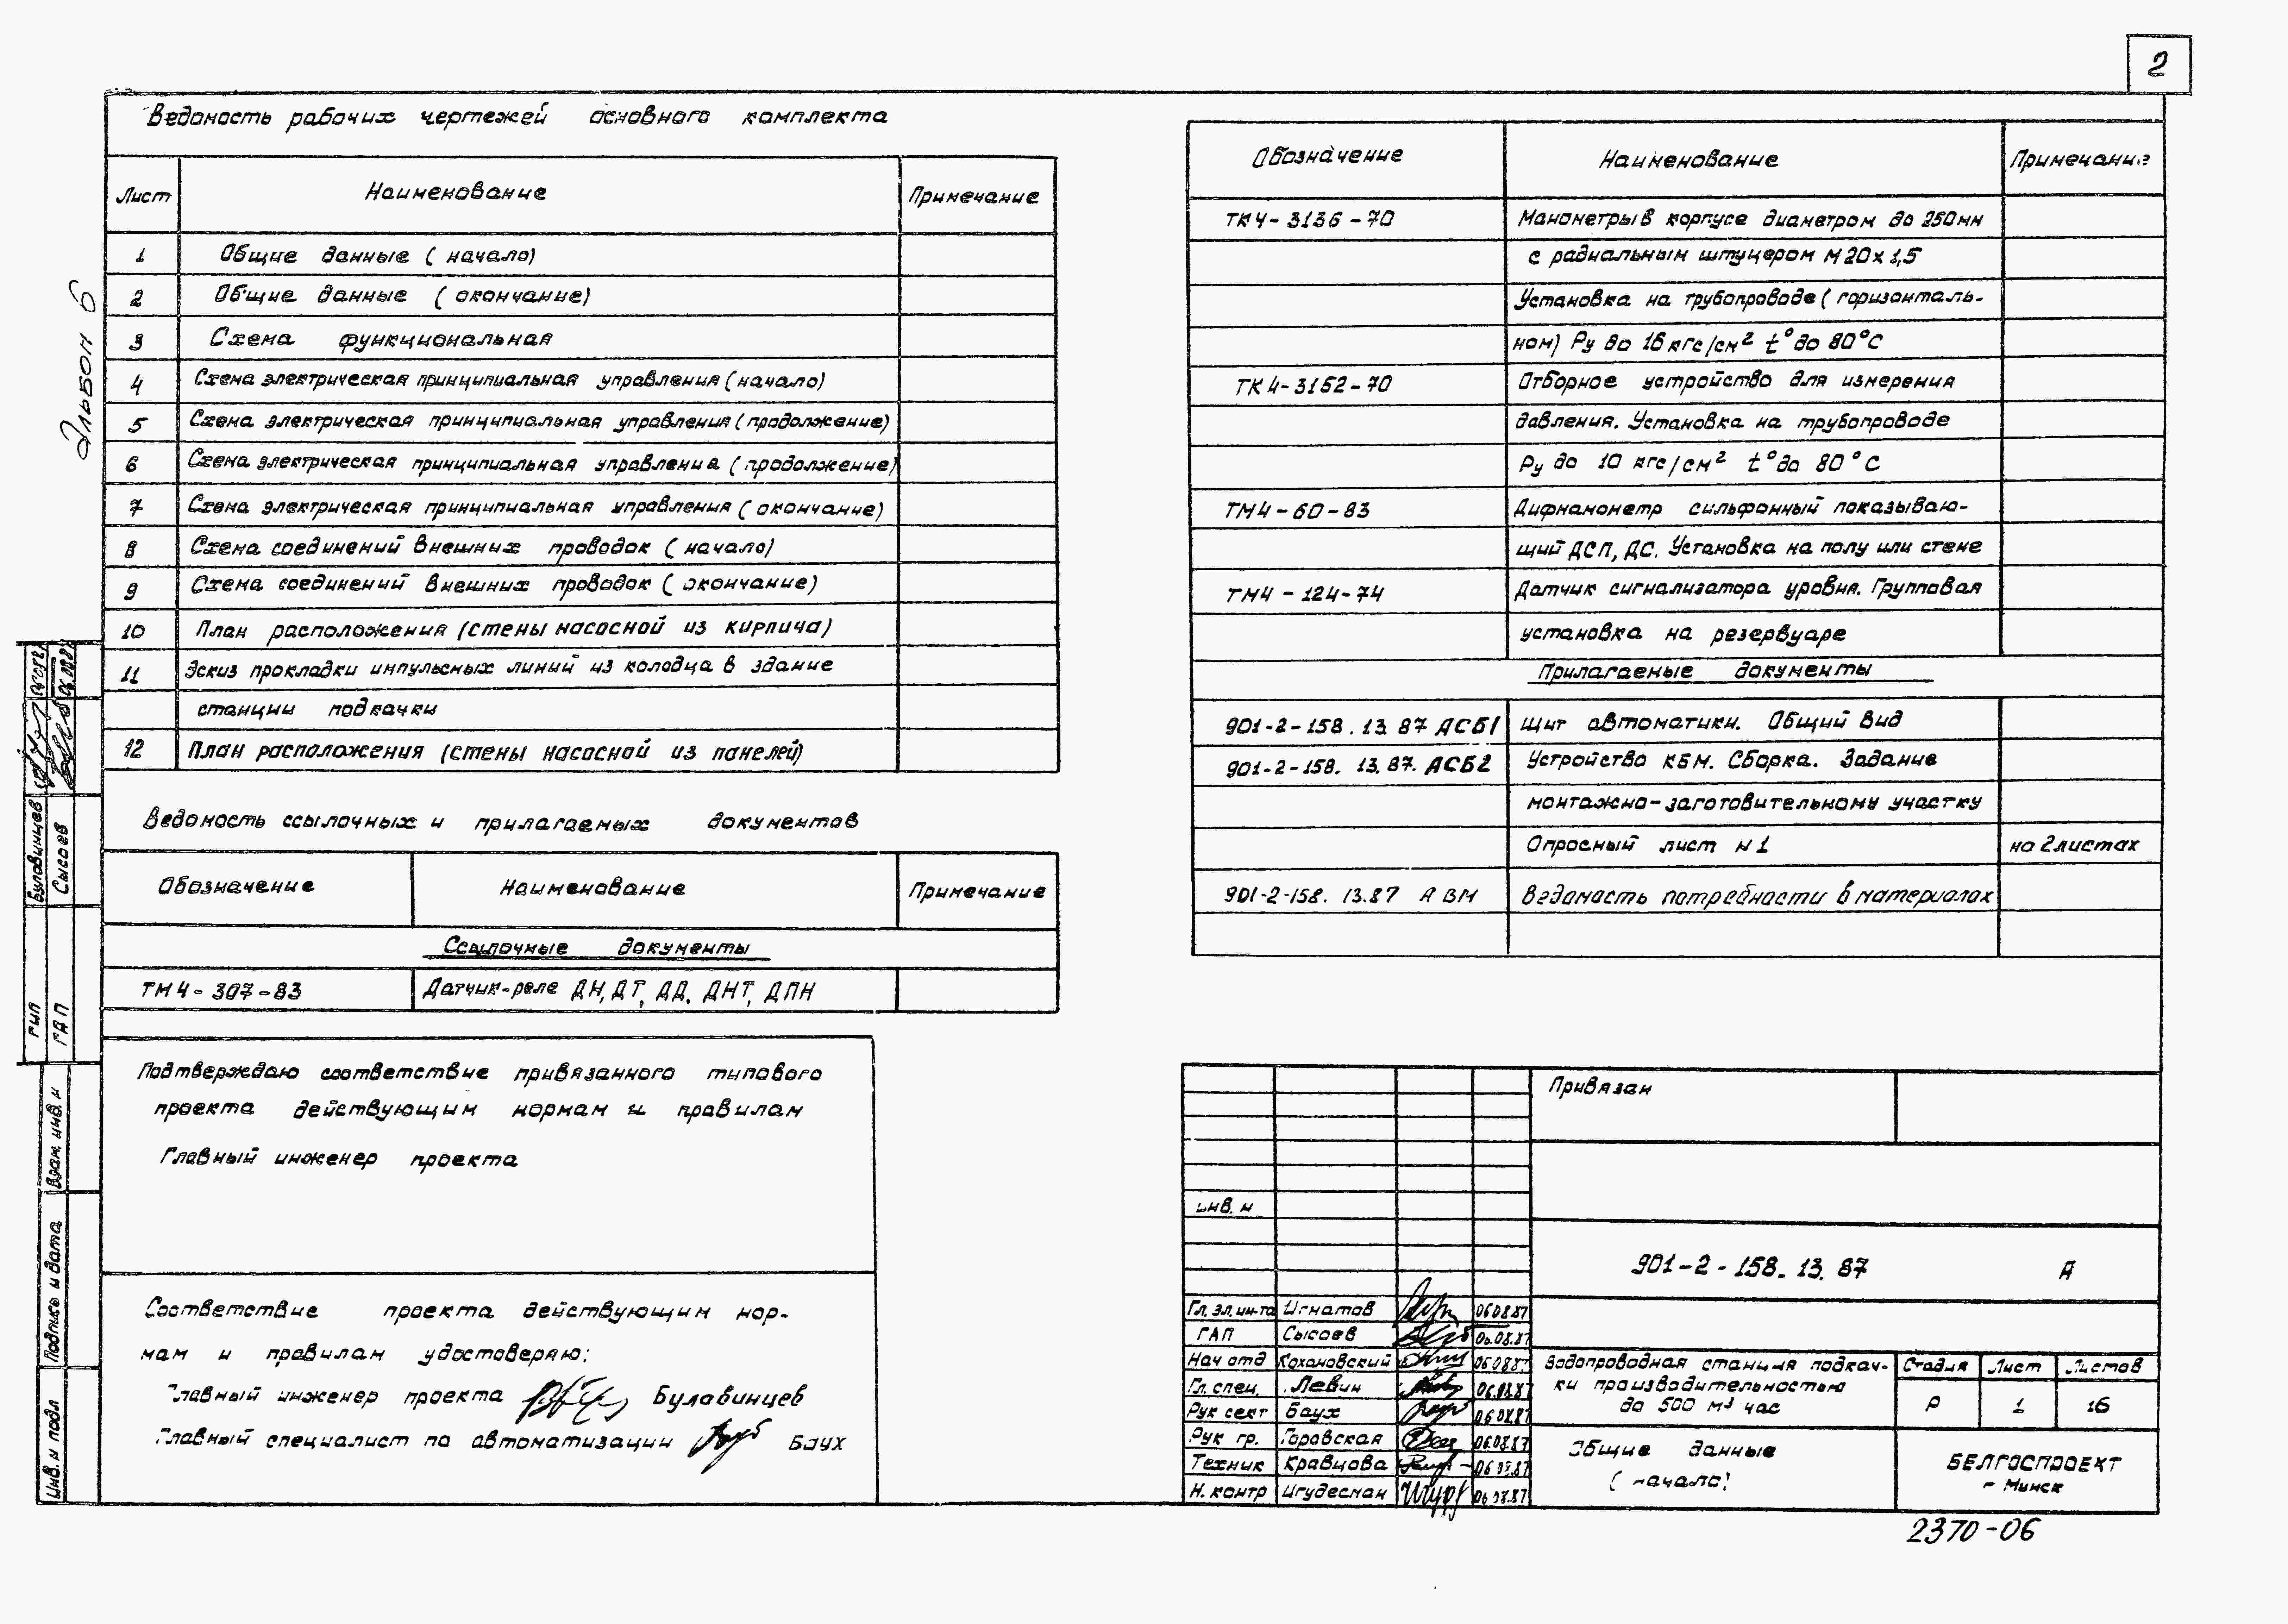 2
Альбом 6
Ведомость рабочих чертежей основного комплекта
Лист Наименование Примечание
1 Общие данные (начало)
2 Общие данные (окончание)
3 Схема функциональная
4 Схема электрическая принципиальная управления (начало)
5 Схема электрическая принципиальная управления (продолжение)
6 Схема электрическая принципиальная управления (продолжение)
7 Схема электрическая принципиальная управления (окончание)
8 Схема соединений внешних проводок (начало)
9 Схема соединений внешних проводок (окончание)
10 План расположения (стены насосной из кирпича)
11 Эскиз прокладки импульсных линий из колодца в здание
станции подкачки
12 План расположения (стены насосной из панелей)
Ведомость ссылочных и прилагаемых документов
Обозначение Наименование Примечание
Ссылочные документы
ТМ4-307-83 Датчик-реле ДН, ДТ, ДД, ДНТ, ДПН
Подтверждаю соответствие привязанного типового
проекта действующим нормам и правилам
Главный инженер проекта
Соответствие проекта действующим нор-
мам и правилам удостоверяю:
Главный инженер проекта Булавинцев
Главный специалист по автоматизации Баух
Обозначение Наименование Примечание
ТК4-3136-70 Манометры в корпусе диаметром до 250мм
с радиальным штуцером М20х1,5
Установка на трубопроводе (горизонталь-
ном) Ру до 16 кгс/см² t° до 80°С
ТК4-3152-70 Отборное устройство для измерения
давления. Установка на трубопроводе
Ру до 10 кгс/см² t° до 80°С
ТМ4-60-83 Дифманометр сильфонный показываю-
щий ДСП, ДС. Установка на полу или стене
ТМ4-124-74 Датчик сигнализатора уровня. Групповая
установка на резервуаре
Прилагаемые документы
901-2-158.13.87 АСБ1 Щит автоматики. Общий вид
901-2-158.13.87. АСБ2 Устройство КБМ. Сборка. Задание
монтажно-заготовительному участку
Опросный лист н1 на 2 листах
901-2-158.13.87 А ВМ Ведомость потребности в материалах
Привязан
инв. н
901-2-158.13.87 А
Гл. эл. ин-та Игнатов 06.08.87
ГАП Сысоев 06.08.87
Нач отд Кохановский 06.08.87
Гл. спец. Левин 06.08.87
Рук сект Баух 06.08.87
Рук гр. Горавская 06.08.87
Техник Кравцова 06.08.87
Н. контр Игудесман 06.08.87
Водопроводная станция подкач-
ки производительностью
до 500 м³ час
Стадия Лист Листов
Р 1 16
Общие данные
(начало)
БЕЛГОСПРОЕКТ
г Минск
2370-06
ГИП Булавинцев
ГАП Сысоев
Взам. инв. н
Подпись и дата
Инв. н подл